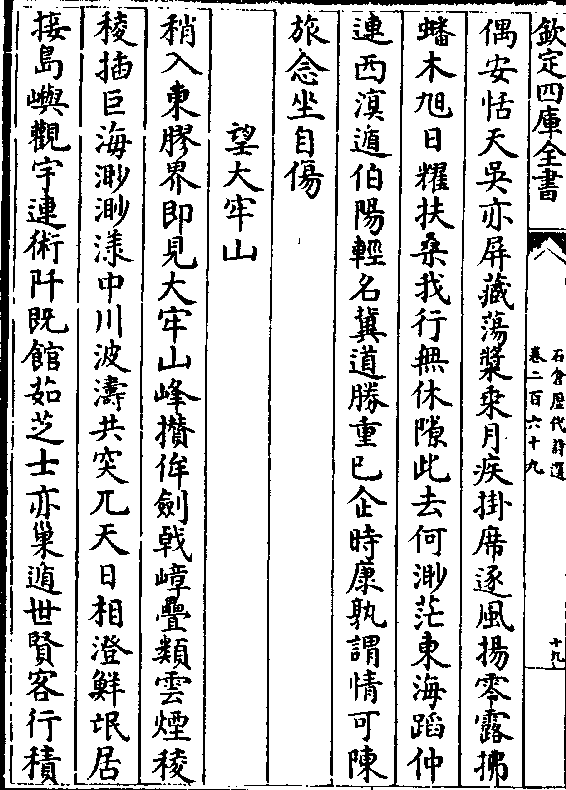 欽定四庫全書
石倉歷代詩選
卷二百六十九
十九
偶安恬天吳亦屏藏蕩槳乗月疾掛席逐風揚零露拂
蟠木旭日糶扶桑我行無休隙此去何渺茫東海蹈仲
連西滇遁伯陽輕名冀道勝重已企時康孰謂情可陳
旅念坐自傷
望大牢山
稍入東膠界即見大牢山峰攢侔劍戟嶂疊類雲煙稜
稜插巨海渺渺漾中川波濤共突兀天日相澄鮮氓居
接島嶼觀宇連術阡既館茹芝士亦巢遁世賢客行積